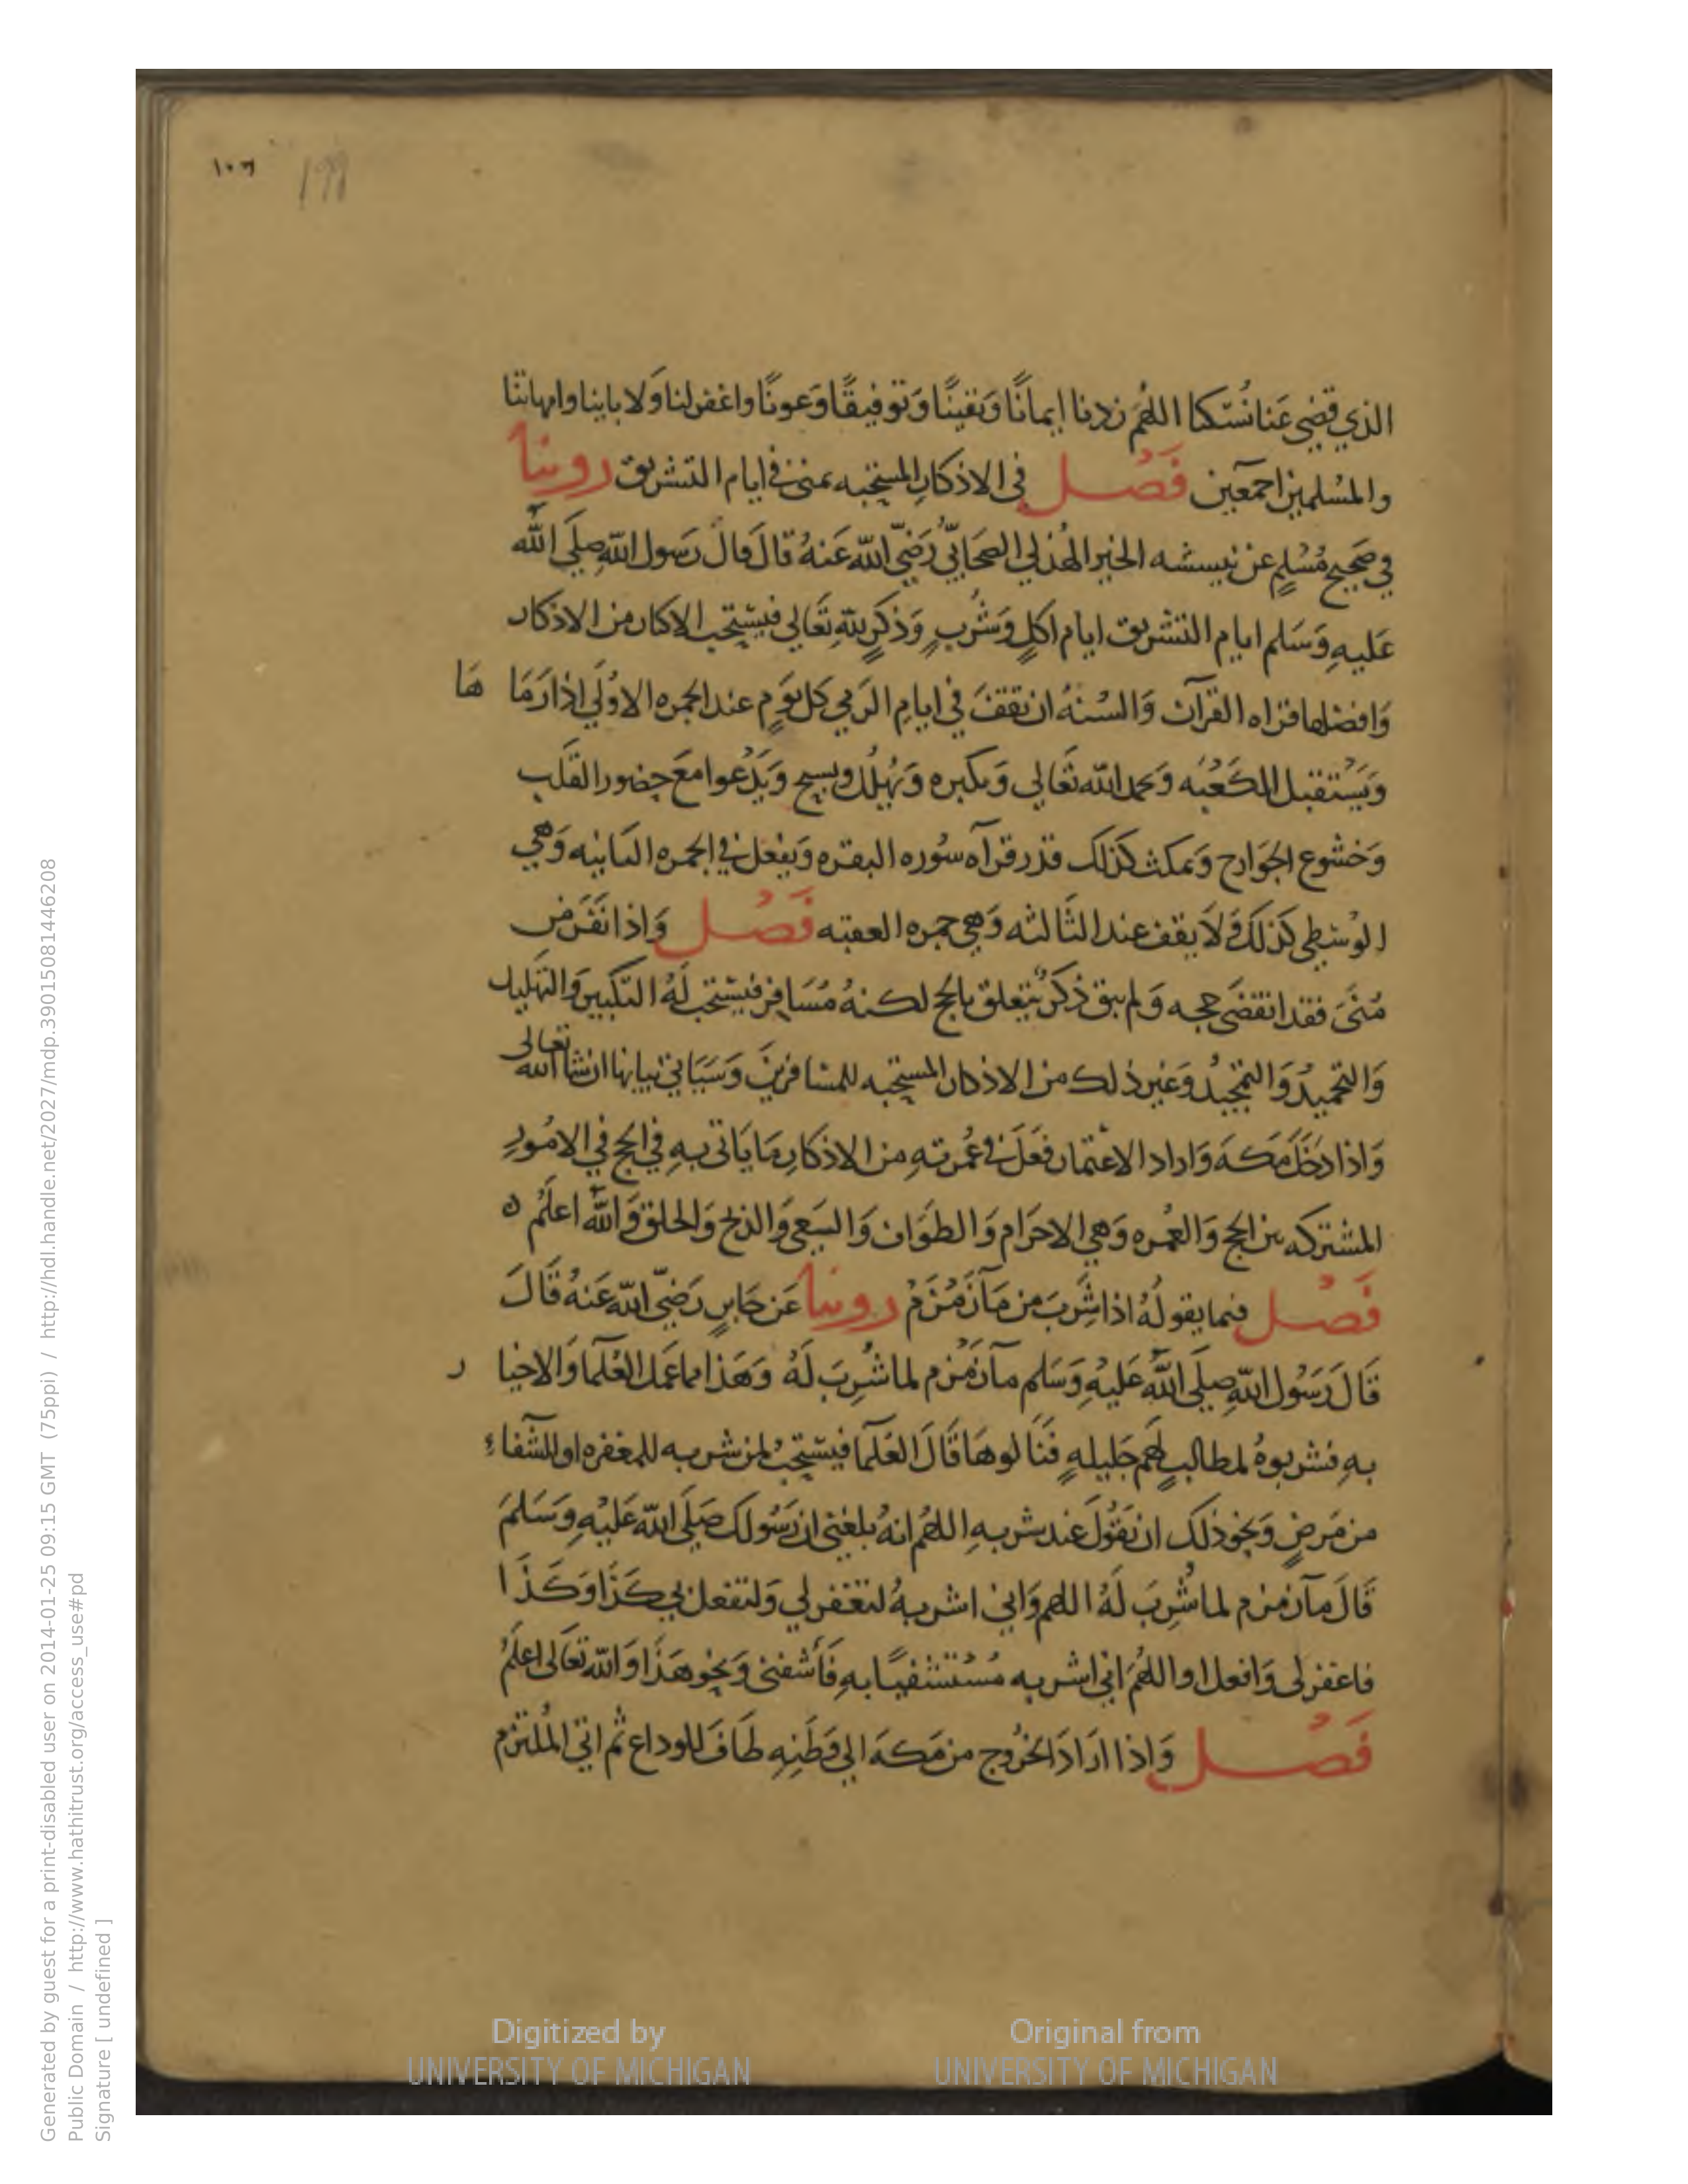 ١٠٦ 199
الذي قضى عَنا نُسُكنا اللهُم زدنا ايمانًا وَيَقينًا وَتوفيقًا وَعونًا واغفر لنا وَلابائنا وامهاتنا
والمُسلمين اجمَعين فَصْل فى الاذكار المستحبه بمنى في ايام التشريق روينا
في صَحيح مُسْلمٍ عن نبيشه الخير الهُذلي الصحَابيّ رَضيَ اللهُ عَنهُ قالَ قالَ رَسول اللهِ صلى الله
عَليهِ وَسَلم ايام التشريق ايام اكلٍ وَشُربٍ وَذكرِ للهِ تَعَالى فيستحب الاكثار من الاذكار
وَافضلها قراه القرآن وَالسنهُ ان تقفَ في ايامِ الرَمي كل يَومٍ عند الجمره الاوُلَى اذا رَمَا هَا
وَيَسْتقبل الكَعْبَه وَيحمد الله تعَالى وَيكبره وَيُهَلل ويسبح وَيَدْعوا مَعَ حضور القَلب
وَخشوع الجَوَارح وَيمكث كذلك قدر قرآه سوُره البقره وَيفعل في الجمره الثانيه وَهي
الوُسْطى كذلك وَلاَ يقف عند الثَالثه وَهي جمره العقبه فَصْل وَاذا نفَرَ من
مُنَى فقد انقضَى حجه وَلم يبق ذكرٌ يَتعلق بالحج لكنهُ مُسَافِر فيستحب لَهُ التكبير وَالتهليل
وَالتحميدُ وَالتمجيدُ وَغير ذلك من الاذكار المستحبه للمسَافرينَ وَسَيَاتي بيانها ان شا الله تعالى
وَاذا دَخَلَ مَكهَ وَاراد الاعتمار فعَلَ في عُمرتهِ من الاذكارِ مَا يَاتى بهِ في الحج في الامُورِ
المشتركه بين الحج وَالعُمره وَهي الاحرَام وَالطوَاف وَالسَعي وَالذبح وَالحلق وَالله اعلَمُ ه
فَصْل فيما يقولهُ اذا شَرِبَ من مَآ زَمْزَمْ روينا عَن جَابرٍ رَضيَ الله عَنهُ قَالَ
قَالَ رَسُول اللهِ صلى الله عَليهِ وَسَلم مآ زَمْزم لما شُرِبَ لَهُ وَهَذا مما عَمل العُلمَا وَالاخيا ر
بهِ فشربوهُ لمطالبٍ لهُم جَليلهٍ فَنَالوهَا قَالَ العُلَمآ فيستحبُ لمن شربه للمغفره او للشفاء
من مَرضٍ وَنحو ذلك ان يَقُولَ عند شربهِ اللهُم انهُ بلغنى ان رَسُولك صَلَى الله عَليْهِ وَسَلمَ
قَالَ مآ زمزم لما شُرِبَ لَهُ اللهم وَاني اشربهُ لتغفر لي وَلتفعل بي كَذَا وَكَذَا
فاغفر لى وَافعل او اللهُمَ اني اشربه مُسْتشفيًا بهِ فَأشفنى وَنحو هَذَا وَالله تعَالى اعلَمُ
فَصْل وَاذا ارَادَ الخرُوج من مَكهَ الى وَطَنِهِ طَافَ للوداع ثم اتى المُلتزم
Digitized by
UNIVERSITY OF MICHIGAN
Original from
UNIVERSITY OF MICHIGAN
Generated by guest for a print-disabled user on 2014-01-25 09:15 GMT (75ppi) / http://hdl.handle.net/2027/mdp.39015081446208
Public Domain / http://www.hathitrust.org/access_use#pd
Signature [ undefined ]